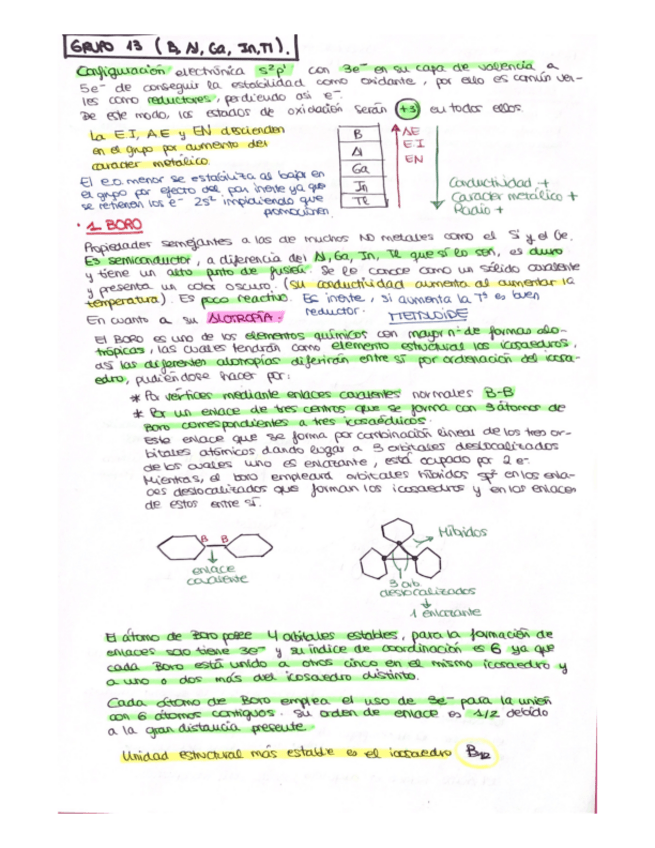 GRUPO 13 (B, Al, Ga, In, Tl).
Configuración electrónica s²p¹ con 3e⁻ en su capa de valencia a
5e⁻ de conseguir la estabilidad como oxidante, por ello es común ver-
les como reductores, perdiendo así e⁻.
De este modo, los estados de oxidación serán +3 en todos ellos.
La EI, AE y EN descienden
en el grupo por aumento del
carácter metálico
El e.o menor se estabiliza al bajar en
el grupo por efecto del par inerte ya que
se retienen los e⁻ 2s² impidiendo que
promocionen.
B
Al
Ga
In
Tl
AE
EI
EN
Conductividad +
Caracter metálico +
Radio +
· 1. BORO
Propiedades semejantes a las de muchos NO metales como el Si y el Ge.
Es semiconductor, a diferencia del Al, Ga, In, Tl que sí lo son, es duro
y tiene un alto punto de fusión. Se le conoce como un sólido covalente
y presenta un color oscuro. (su conductividad aumenta al aumentar la
temperatura). Es poco reactivo. Es inerte, si aumenta la Tª es buen
reductor. METALOIDE
En cuanto a su ALOTROPÍA:
El BORO es uno de los elementos químicos con mayor nº de formas alo-
trópicas, las cuales tendrán como elemento estructural los icosaedros,
así las diferentes alotropías diferirán entre sí por ordenación del icosa-
edro, pudiéndose hacer por:
* Por vértices mediante enlaces covalentes normales B-B
* Por un enlace de tres centros que se forma con 3 átomos de
Boro correspondientes a tres icosaédricos.
Este enlace que se forma por combinación lineal de los tres or-
bitales atómicos dando lugar a 3 orbitales deslocalizados
de los cuales uno es enlazante, está ocupado por 2 e⁻.
Mientras, el boro empleará orbitales híbridos sp² en los enla-
ces deslocalizados que forman los icosaedros y en los enlaces
de estos entre sí.
B B
enlace
covalente
Híbridos
3 orb
deslocalizados
1 enlazante
El átomo de Boro posee 4 orbitales estables, para la formación de
enlaces solo tiene 3e⁻ y su índice de coordinación es 6 ya que
cada Boro está unido a otros cinco en el mismo icosaedro y
a uno o dos más del icosaedro distinto.
Cada átomo de Boro emplea el uso de 3e⁻ para la unión
con 6 átomos contiguos. Su orden de enlace es 1/2 debido
a la gran distancia presente
Unidad estructural más estable es el icosaedro B₁₂